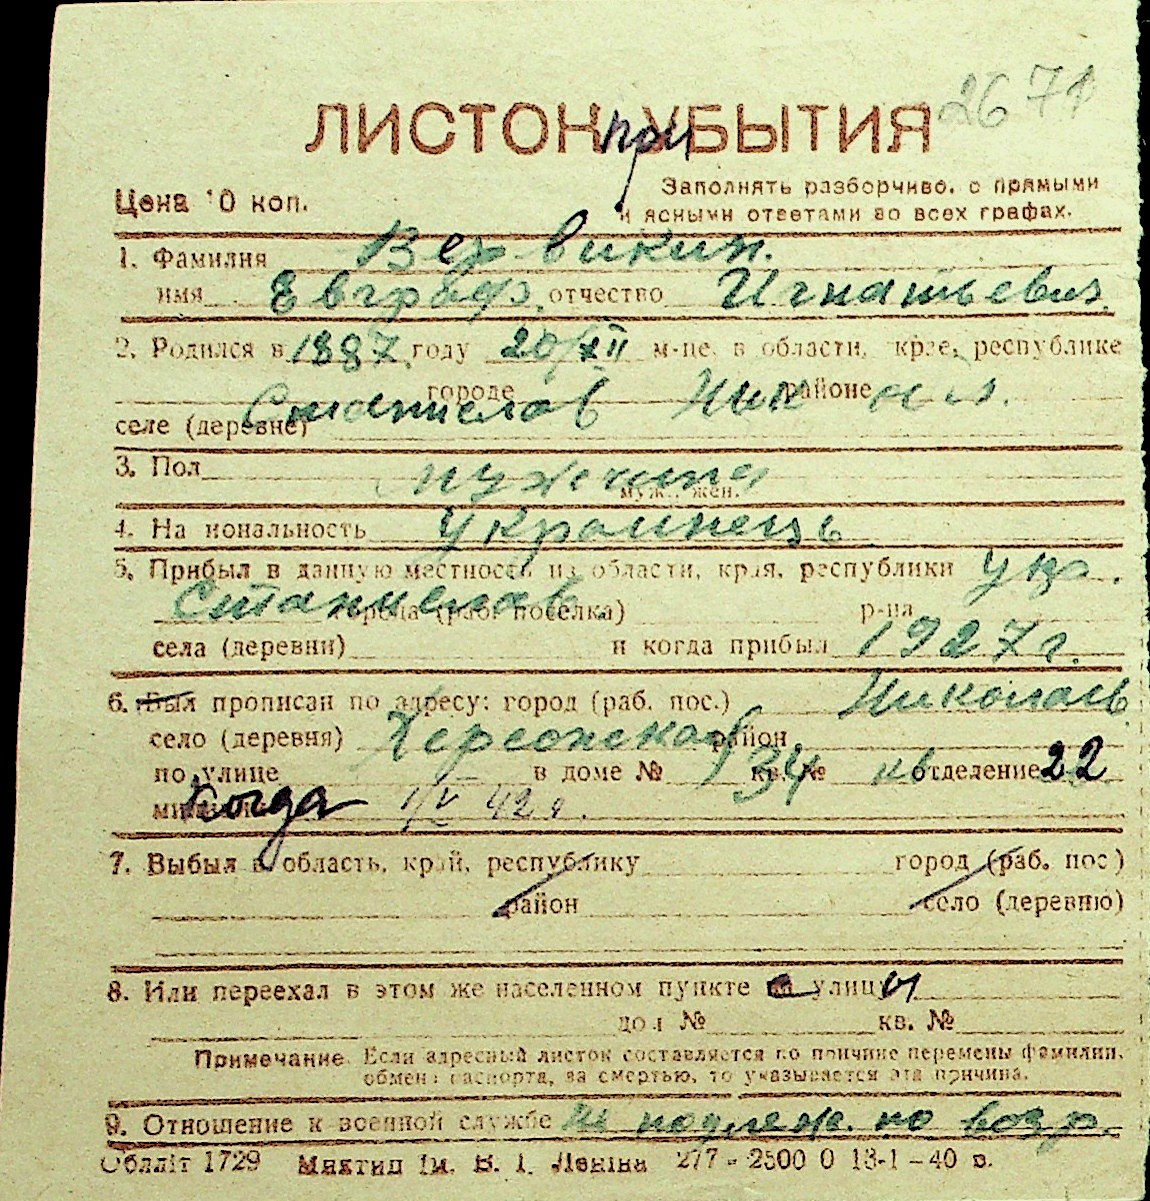 2671
ЛИСТОК при УБЫТИЯ
Цена 10 коп.
Заполнять разборчиво, с прямыми
и ясными ответами во всех графах.
1. Фамилия Вервикин.
имя Евграф отчество Игнатьевич.
2. Родился в 1887 году 20/XII м-це, в области, крае, республике
городе районе
Станислав Ник
селе (деревне)
3. Пол мужчина
муж., жен.
4. Национальность Украинець
5. Прибыл в данную местность из области, края, республики Укр.
Станислав города (раб. поселка) р-на
села (деревни) и когда прибыл 1927 г.
6. Был прописан по адресу: город (раб. пос.) Николаев
село (деревня) Херсонская район
по улице в доме № 34 кв. № отделение 22
милиции Когда 1/V 42 г.
7. Выбыл в область, край, республику город (раб. пос.)
район село (деревню)
8. Или переехал в этом же населенном пункте с улицы
дом № кв. №
Примечание. Если адресный листок составляется по причине перемены фамилии,
обмена паспорта, за смертью, то указывается эта причина.
9. Отношение к военной службе не подлеж. по возр.
Облліт 1729 Миктип Ім. В. І. Леніна 277 - 2500 0 13-1-40 в.